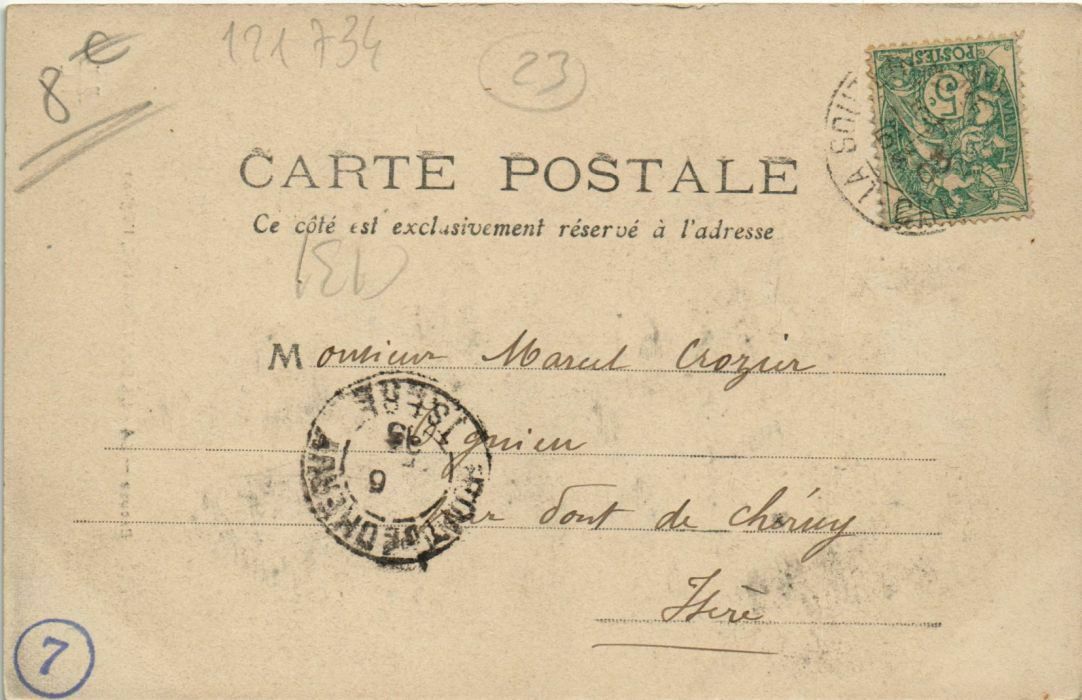 8 €
121 734
23
POSTES
5c
LA SOUS
CARTE POSTALE
Ce côté est exclusivement réservé à l'adresse
Monsieur Marcel Crozier
Tignieu
par Pont de Chéruy
Isère
PONT DE CHERUY
ISERE
6
7